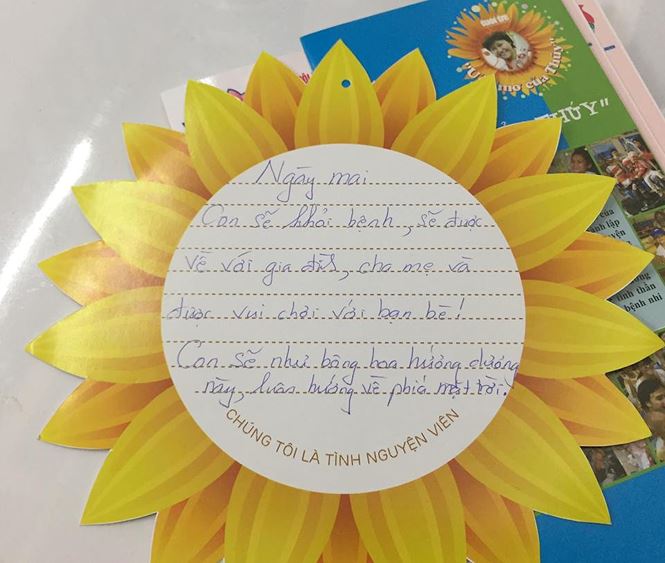 Ngày mai
Con sẽ khỏi bệnh, sẽ được
về với gia đình, cha mẹ và
được vui chơi với bạn bè!
Con sẽ như bông hoa hướng dương
này, luôn hướng về phía mặt trời!
CHÚNG TÔI LÀ TÌNH NGUYỆN VIÊN
mơ của Thúy"
THÚY"
của
nh lập
tinh thần
bệnh nhi